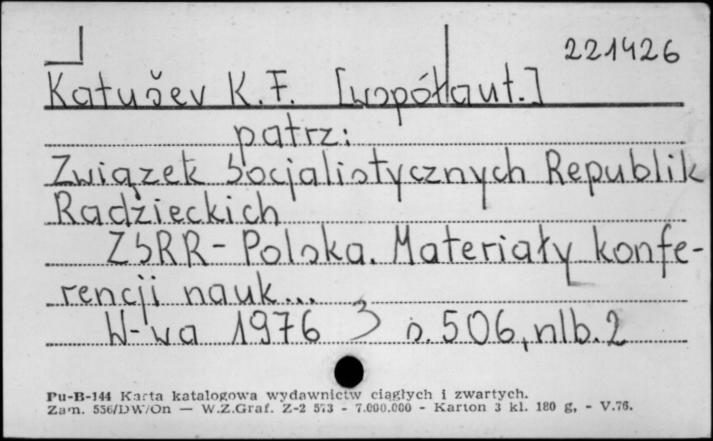 221426
Katušev K.F. [współaut.]
patrz:
Związek Socjalistycznych Republik
Radzieckich
ZSRR - Polska. Materiały konfe-
rencji nauk...
W-wa 1976 3 s. 506, nlb. 2
Pu-B-144 Karta katalogowa wydawnictw ciągłych i zwartych.
Zam. 556/DW/On — W.Z.Graf. Z-2 573 - 7.000.000 - Karton 3 kl. 180 g, - V.76.